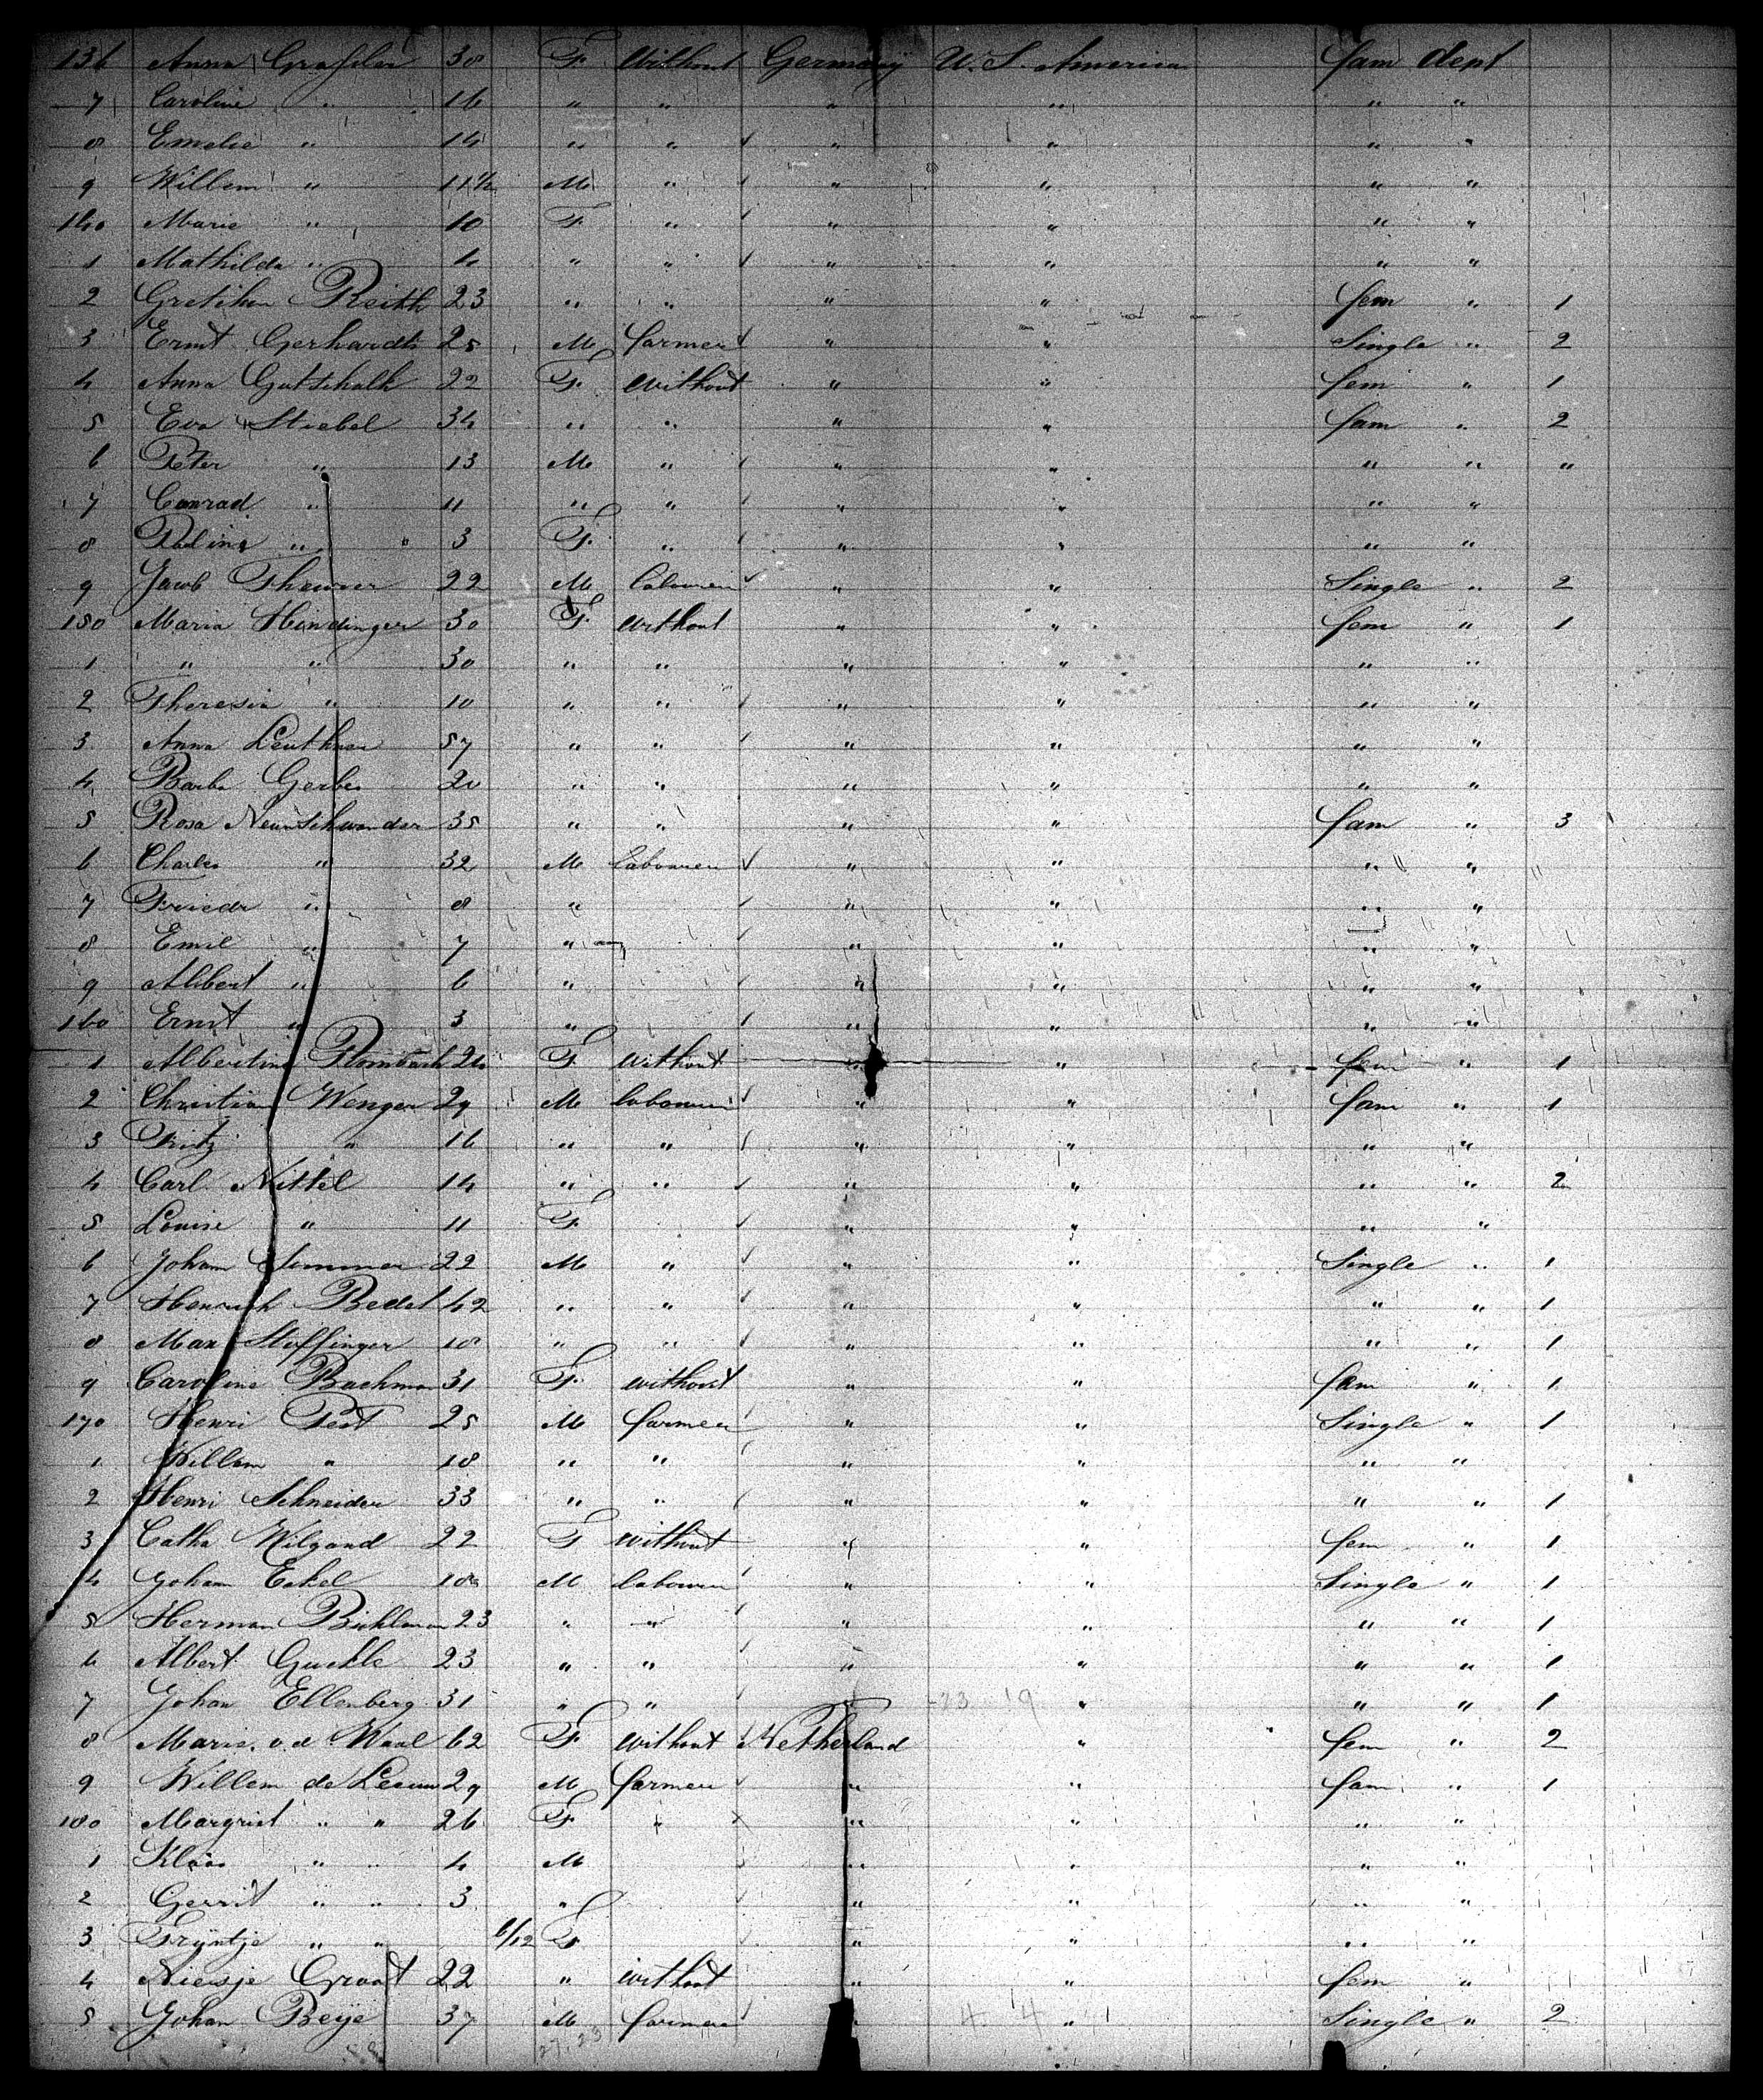 136 Anna Grassler 38 F. Without Germany U. S. America fam dept
7 Caroline " 16 " " " " " "
8 Emelie " 14 " " " " " "
9 Willem " 11½ M " " " " "
140 Marie " 10 F " " " " "
1 Mathilda " 4 " " " " " "
2 Gretchen Reith 23 " " " " fem " 1
3 Ernst Gerhardt 25 M farmer " " Single " 2
4 Anna Gutschalk 22 F. without " " fem " 1
5 Eva Stiebel 34 " " " " fam " 2
6 Peter " 13 M " " " " " "
7 Conrad " 11 " " " " " "
8 Paulina " 3 F. " " " " "
9 Jacob 22 M labourer " " Single " 2
150 Maria Hindinger 30 F. without " " fem " 1
1 " " 30 " " " " " "
2 Theresia " 10 " " " " " "
3 Anna Leuthner 57 " " " " " "
4 Barba Gerber 20 " " " " " "
5 Rosa Neunschwander 35 " " " " fam " 3
6 Charles " 32 M labourer " " " "
7 Friedr " 8 " " " " "
8 Emil " 7 " " " " "
9 Albert " 6 " " " " "
160 Ernst " 3 " " " " "
1 Albertine 24 F. without " " fem " 1
2 Christian Wenger 29 M labourer " " fam " 1
3 Fritz " 16 " " " " " "
4 Carl Nittel 14 " " " " " " 2
5 Louise " 11 F. " " " "
6 Johan Simmer 22 M " " " Single " 1
7 Henrich Bedel 42 " " " " " " 1
8 Max Stoffinger 18 " " " " " " 1
9 Caroline Bachman 31 F. without " " fam " 1
170 Henri Pest 25 M farmer " " Single " 1
1 Willem " 18 " " " " " "
2 Henri Schneider 33 " " " " " " 1
3 Catha Wilgand 22 F without " " fem " 1
4 Johan Eckel 18 M labourer " " Single " 1
5 Herman 23 " " " " " " 1
6 Albert Guckle 23 " " " " " " 1
7 Johan Ellenberg 31 " " " " " " 1
8 Maria v. d. Waal 62 F. without Netherland " fem " 2
9 Willem de Leeuw 29 M farmer " " fam " 1
180 Margriet " " 26 F. " " " "
1 Klaas " " 4 M " " " "
2 Gerrit " " 3 " " " " "
3 Trijntje " " 6/12 F. " " " "
4 Niesje Groot 22 " without " " fem "
5 Johan Beije 37 M farmer " Single " 2